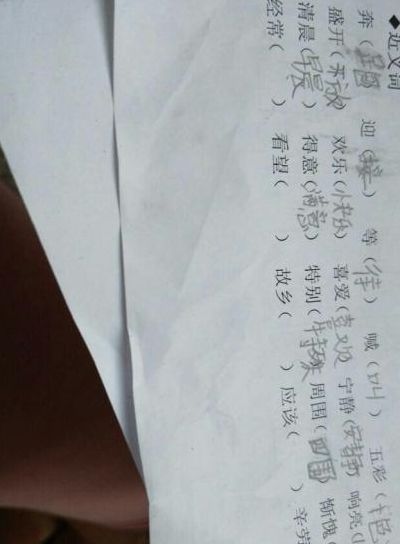 ◆近义词
奔( ) 迎(接) 等(待) 喊(叫) 五彩(
盛开( 放) 欢乐(快乐) 喜爱(喜欢) 宁静(安静) 响亮(
清晨(早晨) 得意(满意) 特别(特殊) 周围( ) 惭愧(
经常( ) 看望( ) 故乡( ) 应该( )